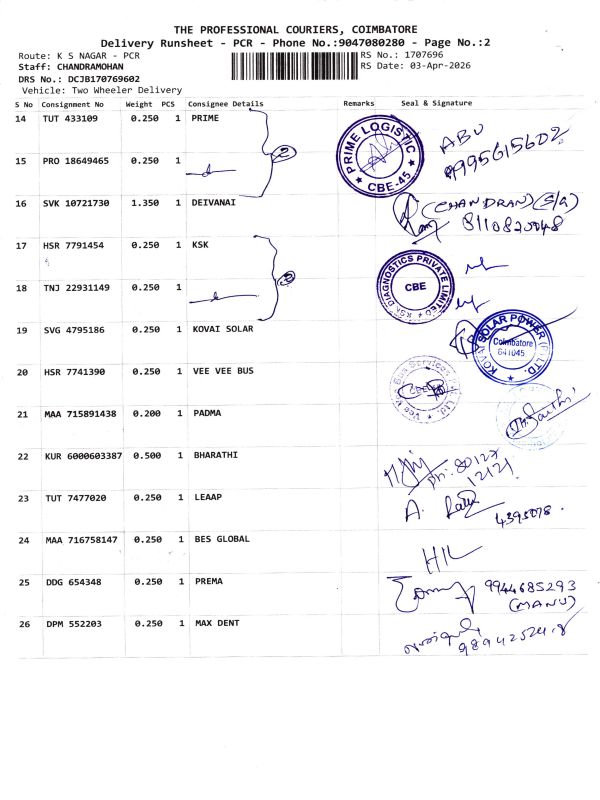 THE PROFESSIONAL COURIERS, COIMBATORE
Delivery Runsheet - PCR - Phone No.:9047080280 - Page No.:2
Route: K S NAGAR - PCR
RS No.: 1707696
Staff: CHANDRAMOHAN
RS Date: 03-Apr-2026
DRS No.: DCJB170769602
Vehicle: Two Wheeler Delivery
S No Consignment No Weight PCS Consignee Details Remarks Seal & Signature
14 TUT 433109 0.250 1 PRIME
PRIME LOGISTIC
CBE-45
ABU
15 PRO 18649465 0.250 1
2
16 SVK 10721730 1.350 1 DEIVANAI
(CHANDRAN) (S/a)
17 HSR 7791454 0.250 1 KSK
KSK DIAGNOSTICS PRIVATE LIMITED
CBE
18 TNJ 22931149 0.250 1
19 SVG 4795186 0.250 1 KOVAI SOLAR
KOVAI SOLAR POWER (P) LTD.
Coimbatore
641045
20 HSR 7741390 0.250 1 VEE VEE BUS
21 MAA 715891438 0.200 1 PADMA
22 KUR 6000603387 0.500 1 BHARATHI
Ph: 80127
12121
23 TUT 7477020 0.250 1 LEAAP
A.
24 MAA 716758147 0.250 1 BES GLOBAL
25 DDG 654348 0.250 1 PREMA
9944685293
(MANU)
26 DPM 552203 0.250 1 MAX DENT